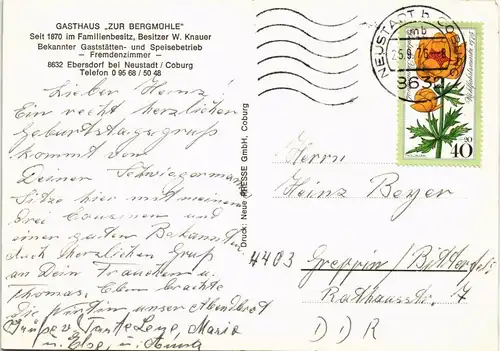 GASTHAUS „ZUR BERGMÜHLE"
Seit 1870 im Familienbesitz, Besitzer W. Knauer
Bekannter Gaststätten- und Speisebetrieb
— Fremdenzimmer —
8632 Ebersdorf bei Neustadt / Coburg
Telefon 0 95 68 / 50 48
Lieber Heinz!
Ein recht herzlichen
Geburtstagsgruß
kommt von
Deiner Schwiegermama
Sitze hier mit meinen
drei Cousinen und
einer guten Bekannten
Auch herzlichen Gruß
an Dein Frauchen u.
Thomas. Eben brachte
die unser Abendbrot
Grüße v. Tante Leny, Maria
u. Else, u. Anna
Druck: Neue PRESSE GmbH, Coburg
NEUSTADT b COBURG
25.9.76
863
40
20
Herrn
Heinz Beyer
4403 Greppin / Bitterfeld
Rathausstr. 7
DDR